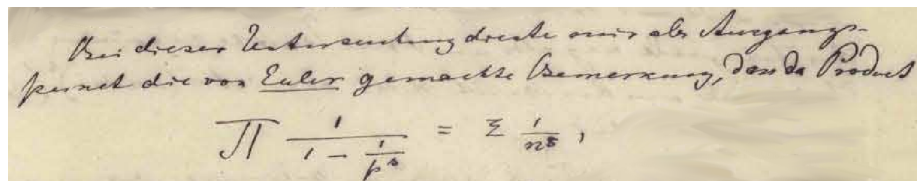 Bei dieser Untersuchung diente mir als Ausgangs-
punkt die von Euler gemachte Bemerkung, dass das Product
∏ 1/(1 - 1/p^s) = Σ 1/n^s,